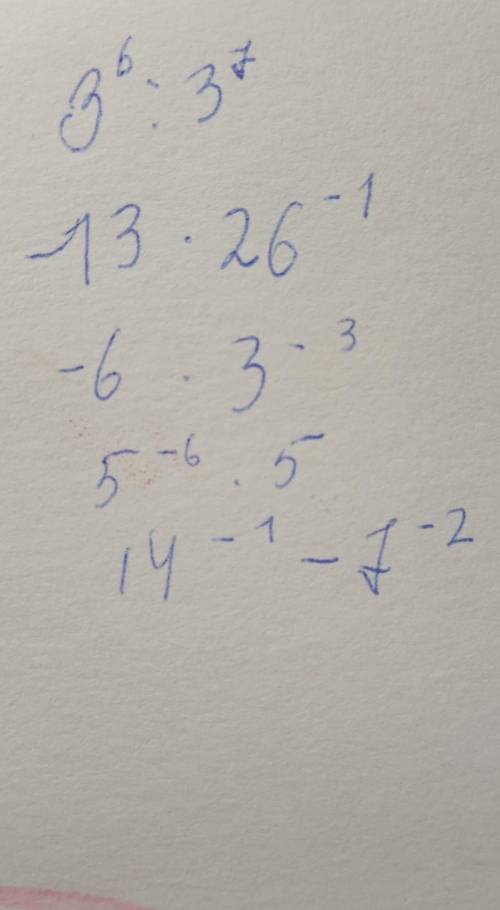 3⁶ : 3⁷
-13 · 26⁻¹
-6 · 3⁻³
5⁻⁶ · 5
14⁻¹ - 7⁻²